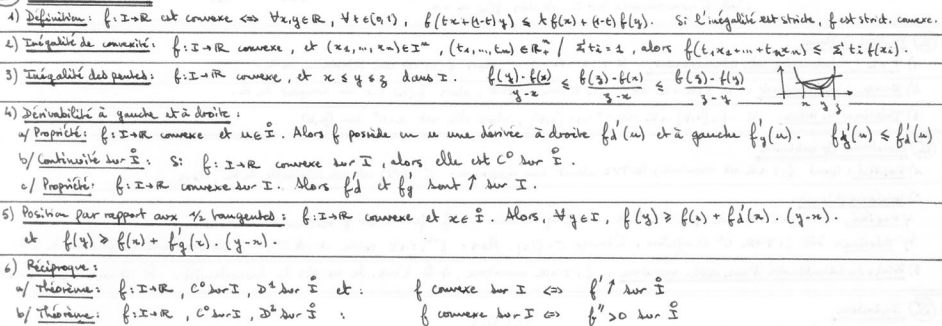 1) Définition : f: I→ℝ est convexe <=> ∀x,y∈ℝ, ∀t∈(0,1), f(tx+(1-t)y) ≤ t f(x) + (1-t) f(y). Si l'inégalité est stricte, f est strict. convexe.
2) Inégalité de convexité : f: I→ℝ convexe, et (x1,...,xn)∈Iⁿ, (t1,...,tn)∈ℝ₊ⁿ / Σti=1, alors f(t1x1+...+tnxn) ≤ Σ ti f(xi).
3) Inégalité des pentes : f: I→ℝ convexe, et x ≤ y ≤ z dans I. (f(y)-f(x))/(y-x) ≤ (f(z)-f(x))/(z-x) ≤ (f(z)-f(y))/(z-y) x y z
4) Dérivabilité à gauche et à droite :
a/ Propriété : f: I→ℝ convexe et u∈I̊. Alors f possède en u une dérivée à droite fd'(u) et à gauche fg'(u). fg'(u) ≤ fd'(u)
b/ Continuité sur I̊ : Si f: I→ℝ convexe sur I, alors elle est C⁰ sur I̊.
c/ Propriété : f: I→ℝ convexe sur I. Alors fd' et fg' sont ↑ sur I.
5) Position par rapport aux 1/2 tangentes : f: I→ℝ convexe et x∈I̊. Alors, ∀y∈I, f(y) ≥ f(x) + fd'(x).(y-x).
et f(y) ≥ f(x) + fg'(x).(y-x).
6) Réciproque :
a/ Théorème : f: I→ℝ, C⁰ sur I, D¹ sur I̊ et : f convexe sur I <=> f' ↑ sur I̊
b/ Théorème : f: I→ℝ, C⁰ sur I, D² sur I̊ : f convexe sur I <=> f'' >0 sur I̊